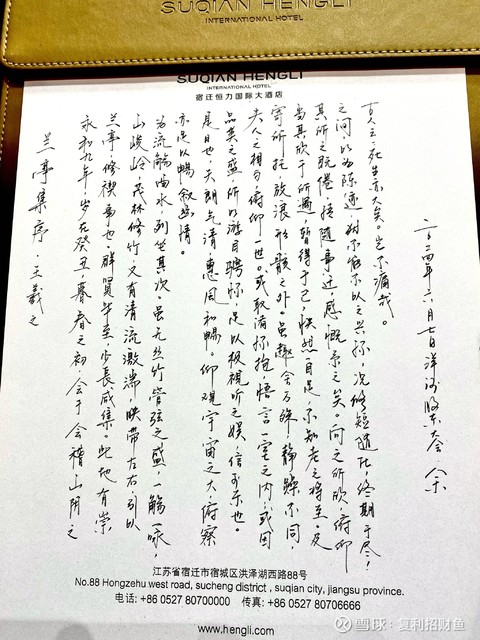 SUQIAN HENGLI
INTERNATIONAL HOTEL
SUQIAN HENGLI
INTERNATIONAL HOTEL
宿迁恒力国际大酒店
兰亭集序·王羲之
永和九年，岁在癸丑，暮春之初，会于会稽山阴之
兰亭，修禊事也。群贤毕至，少长咸集。此地有崇
山峻岭，茂林修竹，又有清流激湍，映带左右，引以
为流觞曲水，列坐其次。虽无丝竹管弦之盛，一觞一咏，
亦足以畅叙幽情。
是日也，天朗气清，惠风和畅。仰观宇宙之大，俯察
品类之盛，所以游目骋怀，足以极视听之娱，信可乐也。
夫人之相与，俯仰一世。或取诸怀抱，悟言一室之内；或因
寄所托，放浪形骸之外。虽趣舍万殊，静躁不同，
当其欣于所遇，暂得于己，快然自足，不知老之将至。及
其所之既倦，情随事迁，感慨系之矣。向之所欣，俯仰
之间，以为陈迹，犹不能不以之兴怀，况修短随化，终期于尽！
古人云：死生亦大矣。岂不痛哉。
二〇二四年六月七日洋河股东大会
江苏省宿迁市宿城区洪泽湖西路88号
No.88 Hongzehu west road, sucheng district , suqian city, jiangsu province.
电话: +86 0527 80700000 传真: +86 0527 80706666
www.hengli.com
雪球：复利招财鱼